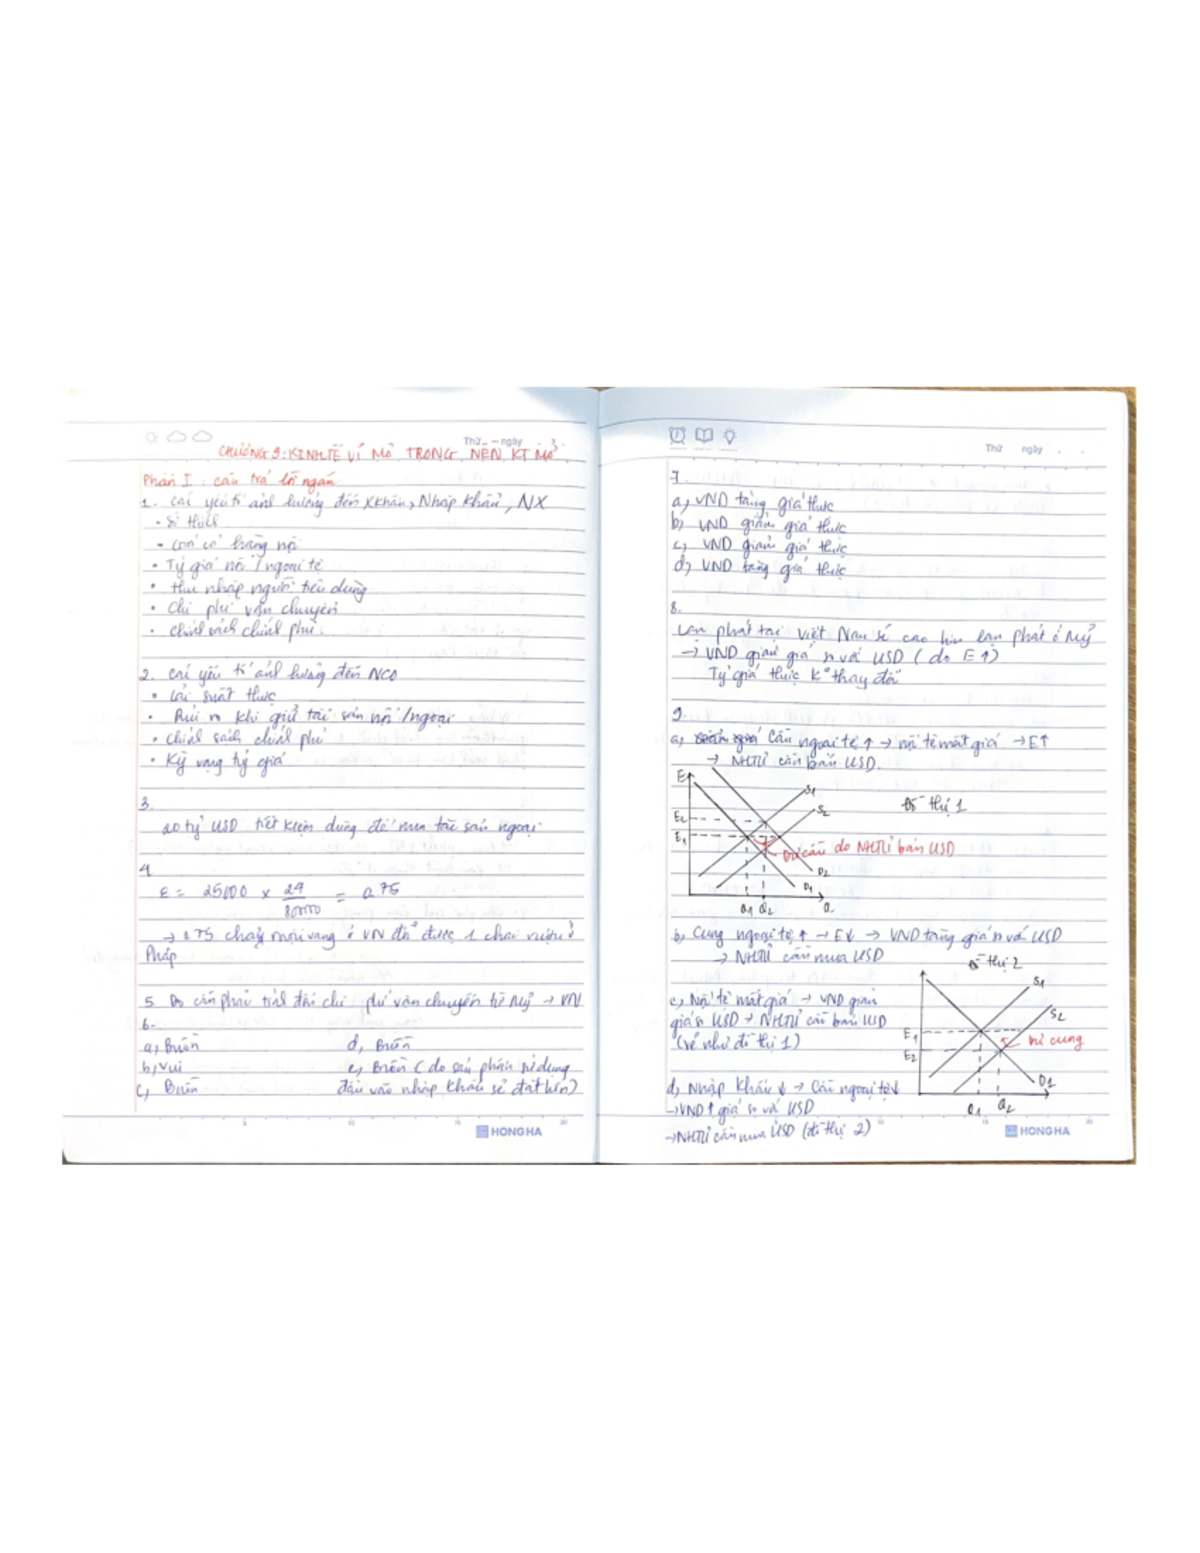 Thứ ngày
CHƯƠNG 9: KINH TẾ VĨ MÔ TRONG NỀN KT MỞ
Phần I: Câu trả lời ngắn
1. Các yếu tố ảnh hưởng đến Xkhẩu, Nhập khẩu, NX
• Sở thích
• Giá cả hàng nội
• Tỷ giá nội / ngoại tệ
• thu nhập người tiêu dùng
• Chi phí vận chuyển
• Chính sách chính phủ.
2. Các yếu tố ảnh hưởng đến NCO
• Lãi suất thực
• Rủi ro khi giữ tài sản nội / ngoại
• Chính sách chính phủ
• Kỳ vọng tỷ giá
3.
20 tỷ USD tiết kiệm dùng để mua tài sản ngoại
4
ε = 25000 × 24 / 80000 = 0.75
→ 0.75 chai vang ở VN đổi được 1 chai rượu ở
Pháp
5. Do cần phải tính đến chi phí vận chuyển từ Mỹ → VN
6.
a, Buồn d, Buồn
b, Vui e, Buồn (do sản phẩm sử dụng
c, Buồn đầu vào nhập khẩu sẽ đắt hơn)
HONG HA
Thứ ngày
7.
a, VND tăng giá thực
b, VND giảm giá thực
c, VND giảm giá thực
d, VND tăng giá thực
8.
Lạm phát tại Việt Nam sẽ cao hơn lạm phát ở Mỹ
→ VND giảm giá so với USD (do E ↑)
Tỷ giá thực k° thay đổi
9.
a, Cầu ngoại tệ ↑ → nội tệ mất giá → E↑
→ NHTƯ cần bán USD.
E
S1
S2
Đồ thị 1
E2
E1
Dư cầu do NHTƯ bán USD
D2
D1
Q1 Q2 Q
b, Cung ngoại tệ ↑ → E↓ → VND tăng giá so với USD
→ NHTƯ cần mua USD
Đồ thị 2
c, Nội tệ mất giá → VND giảm
giá so USD → NHTƯ cần bán USD
(vẽ như đồ thị 1)
S1
S2
E1
E2
Dư cung
D1
Q1 Q2
d, Nhập khẩu ↓ → Cầu ngoại tệ↓
→ VND ↑ giá so với USD
→ NHTƯ cần mua USD (đồ thị 2)
HONG HA